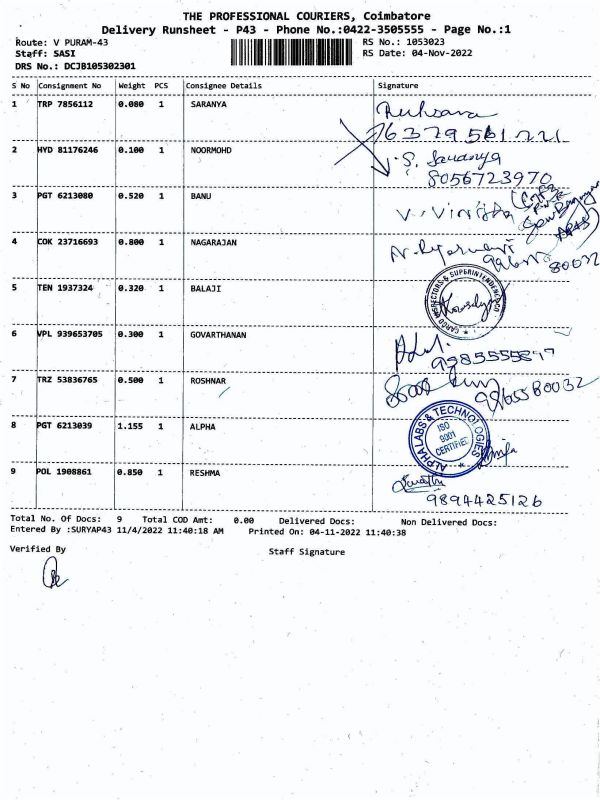 THE PROFESSIONAL COURIERS, Coimbatore
Delivery Runsheet - P43 - Phone No.:0422-3505555 - Page No.:1
Route: V PURAM-43 RS No.: 1053023
Staff: SASI RS Date: 04-Nov-2022
DRS No.: DCJB105302301
S No Consignment No Weight PCS Consignee Details Signature
1 TRP 7856112 0.080 1 SARANYA Ruksana
2 HYD 81176246 0.100 1 NOORMOHD S.
8056723970
3 PGT 6213080 0.520 1 BANU
4 COK 23716693 0.800 1 NAGARAJAN
80032
5 TEN 1937324 0.320 1 BALAJI
6 VPL 939653705 0.300 1 GOVARTHANAN
7 TRZ 53836765 0.500 1 ROSHNAR
8 PGT 6213039 1.155 1 ALPHA ALPHA LABS & TECHNOLOGIES
ISO
9001
CERTIFIED
9 POL 1908861 0.850 1 RESHMA
9894425126
Total No. Of Docs: 9 Total COD Amt: 0.00 Delivered Docs: Non Delivered Docs:
Entered By :SURYAP43 11/4/2022 11:40:18 AM Printed On: 04-11-2022 11:40:38
Verified By Staff Signature